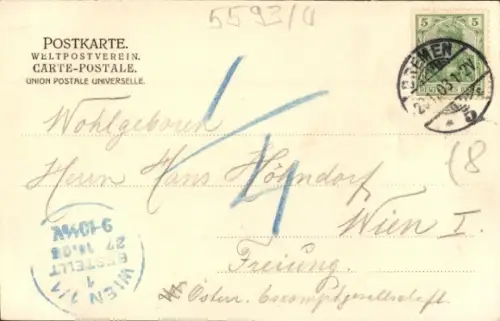 5593/4
POSTKARTE.
WELTPOSTVEREIN.
CARTE-POSTALE.
UNION POSTALE UNIVERSELLE.
5 5
BREMEN
5
1/4
18
Wohlgeboren
Herrn Hans Höhndorf
Wien I.
Freiung.
Österr. Escomptgesellschaft
WIEN 1/1
1
BESTELLT
9-10½V